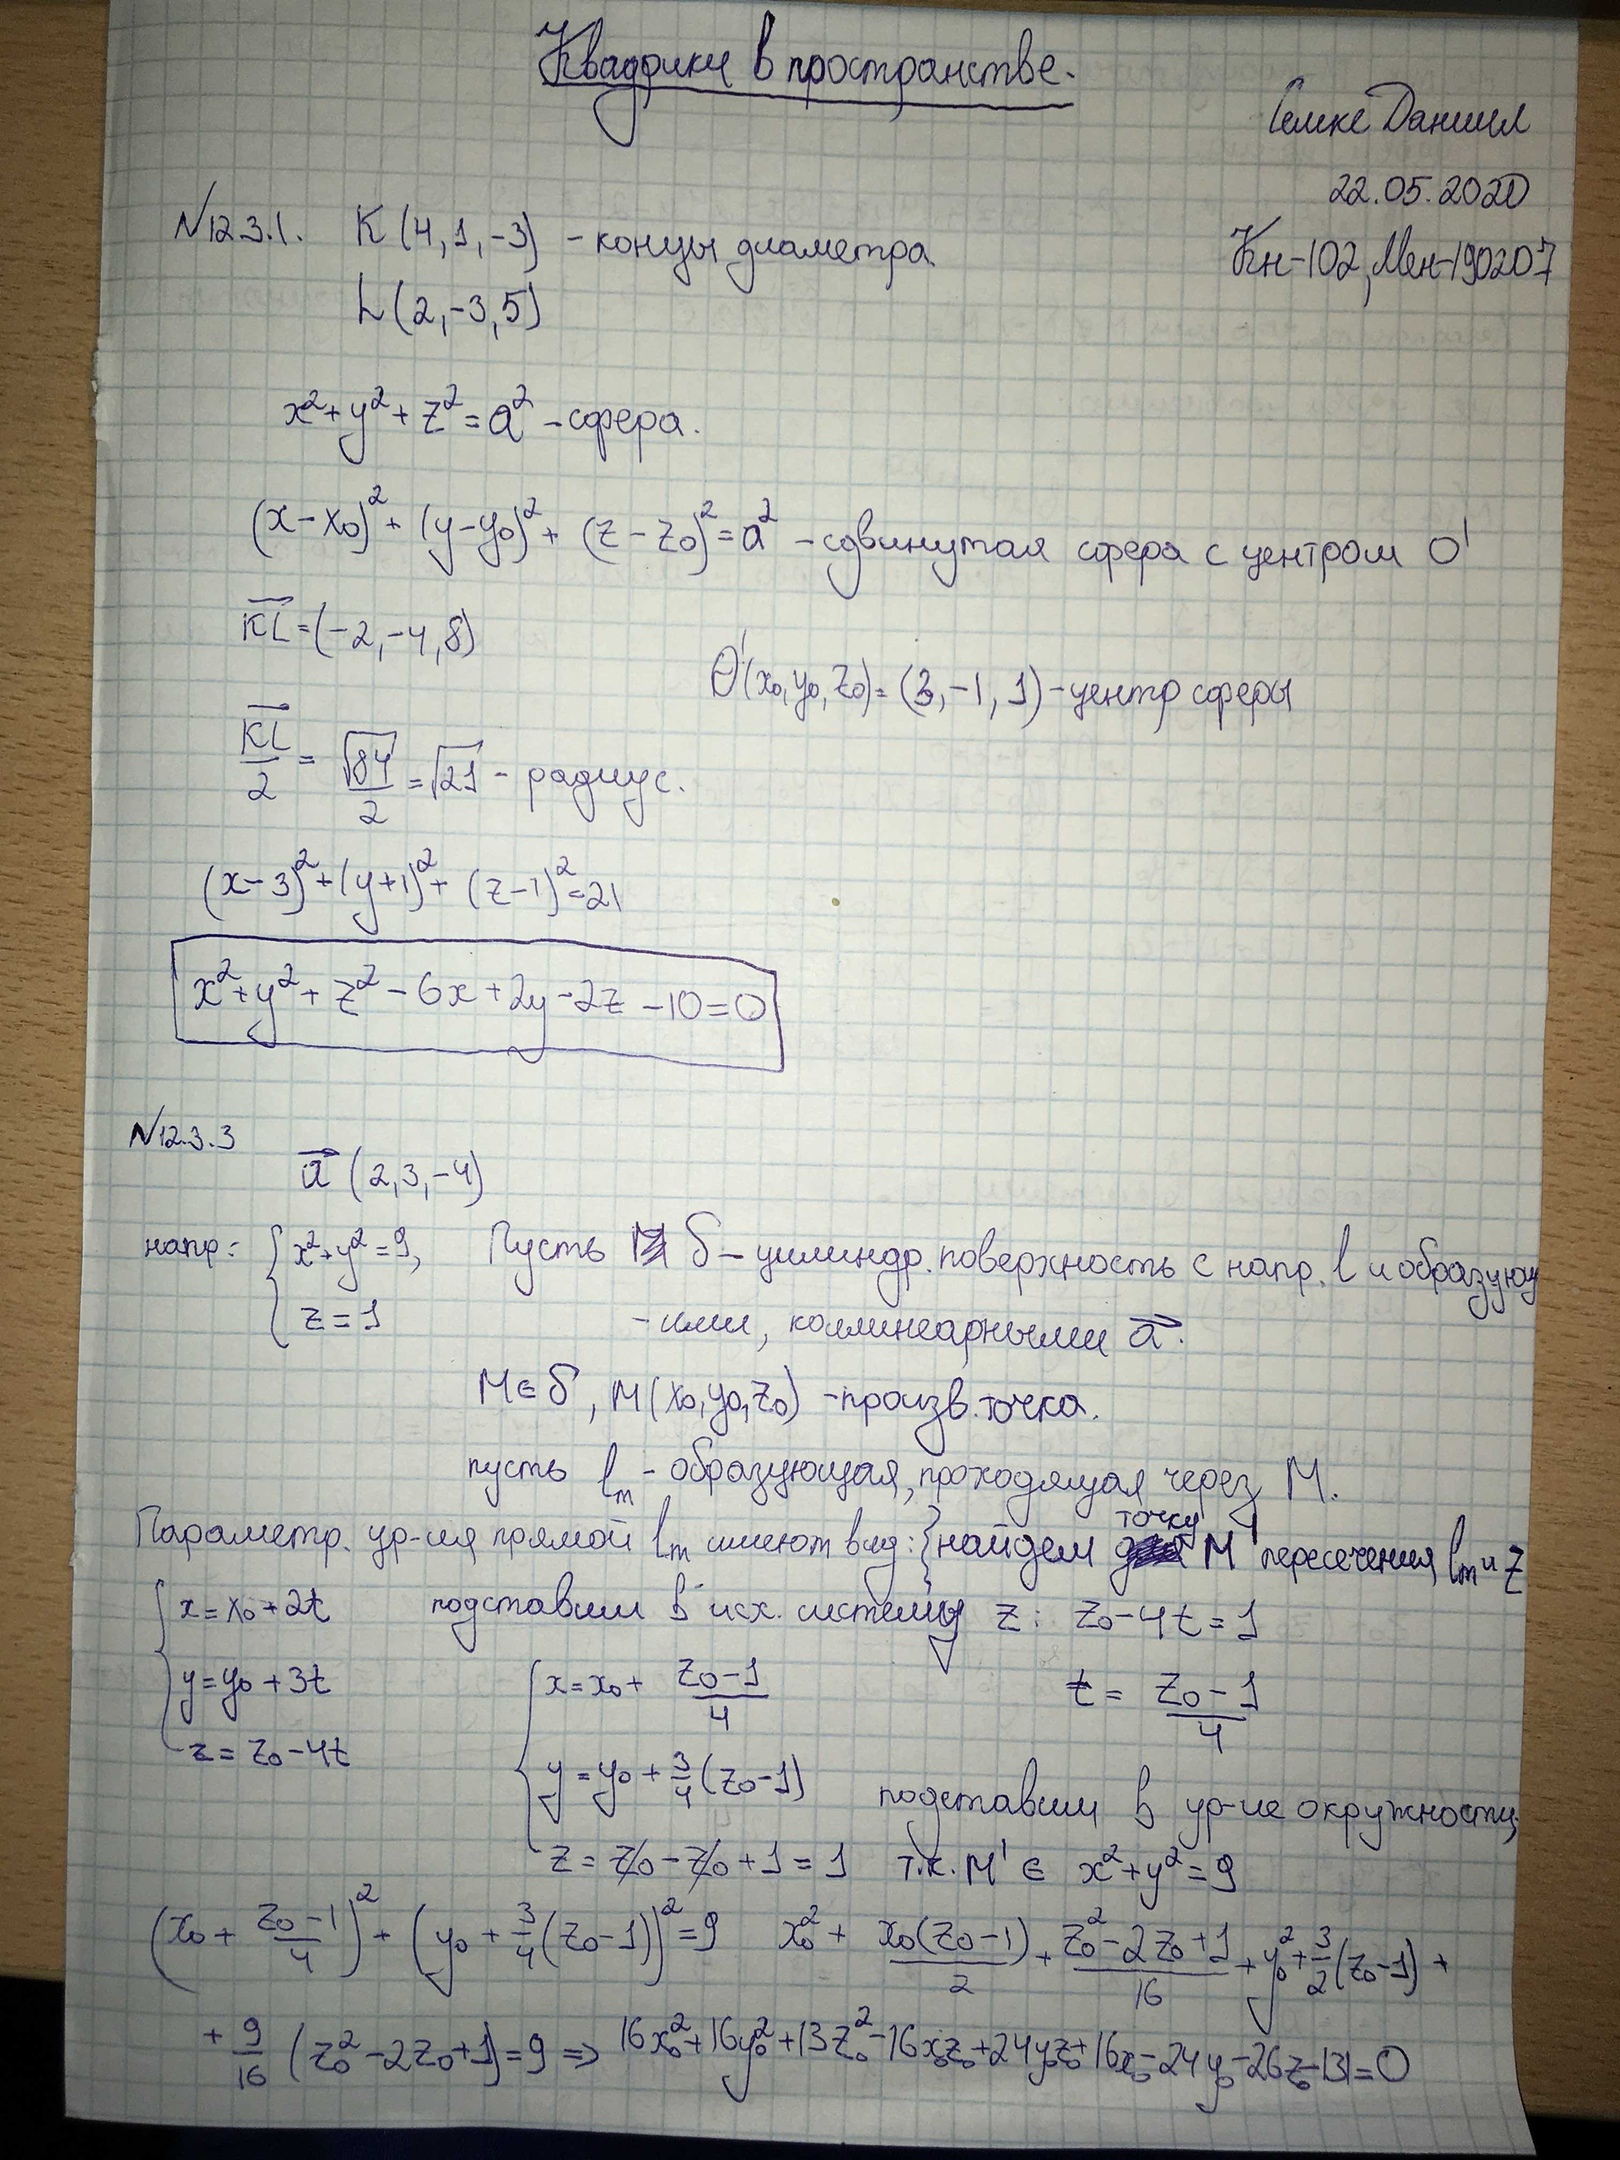 Квадрики в пространстве.
Семке Даниил
22.05.2020
Кн-102, Мен-190207
N12.3.1. K(4,1,-3) - концы диаметра.
L(2,-3,5)
x²+y²+z²=a² - сфера.
(x-x₀)²+(y-y₀)²+(z-z₀)²=a² - сдвинутая сфера с центром O'
KL=(-2,-4,8)
O'(x₀,y₀,z₀)=(3,-1,1) - центр сферы
KL/2 = √84/2 = √21 - радиус.
(x-3)²+(y+1)²+(z-1)²=21
x²+y²+z²-6x+2y-2z-10=0
N12.3.3
a (2,3,-4)
напр: { x²+y²=9, z=1
Пусть δ - цилиндр. поверхность с напр. l и образующ
-ими, коллинеарными a.
M∈δ, M(x₀,y₀,z₀) - произв. точка.
пусть lₘ - образующая, проходящая через M.
Параметр. ур-ия прямой lₘ имеют вид: } найдем точку M' пересечения lₘ и z
{ x=x₀+2t
y=y₀+3t
z=z₀-4t
подставим в исх. систему z: z₀-4t=1
t = (z₀-1)/4
{ x=x₀+ (z₀-1)/4
y=y₀+3/4(z₀-1)
z=z₀-z₀+1=1
подставим в ур-ие окружности,
т.к. M' ∈ x²+y²=9
(x₀+(z₀-1)/4)²+(y₀+3/4(z₀-1))²=9 x₀²+ x₀(z₀-1)/2 + (z₀²-2z₀+1)/16 + y₀²+3/2(z₀-1)+
+9/16(z₀²-2z₀+1)=9 => 16x₀²+16y₀²+13z₀²-16x₀z₀+24y₀z₀+16x₀-24y₀-26z₀-131=0